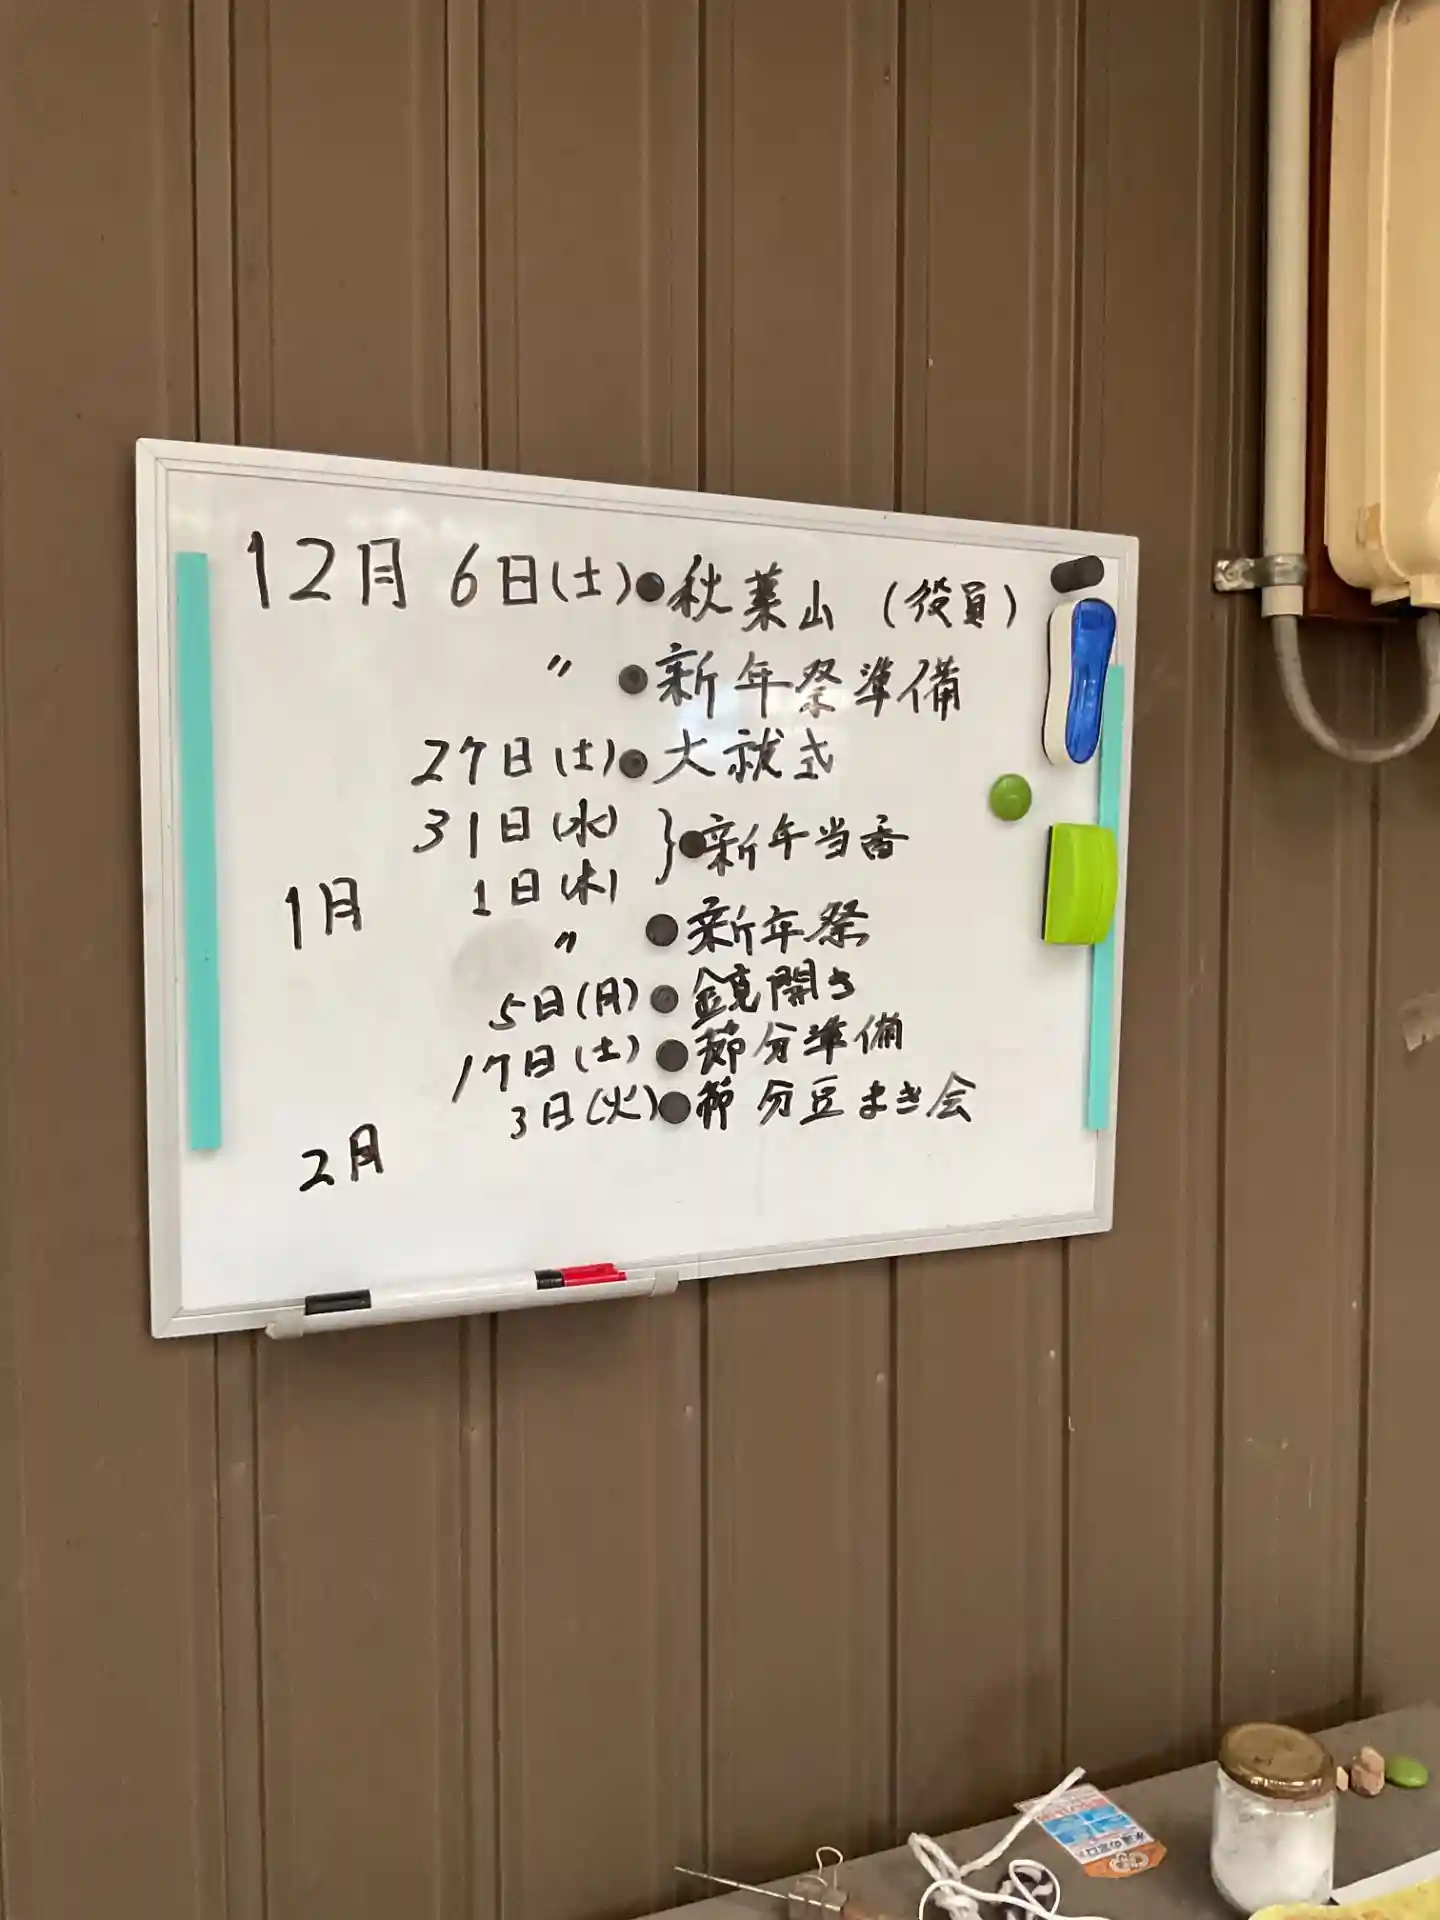 12月 6日(土)●秋葉山 (役員)
〃 ●新年祭準備
27日(土)●大祓式
31日(水)
1月 1日(木) }●新年当番
〃 ●新年祭
5日(月)●鏡開き
17日(土)●節分準備
2月 3日(火)●節分豆まき会